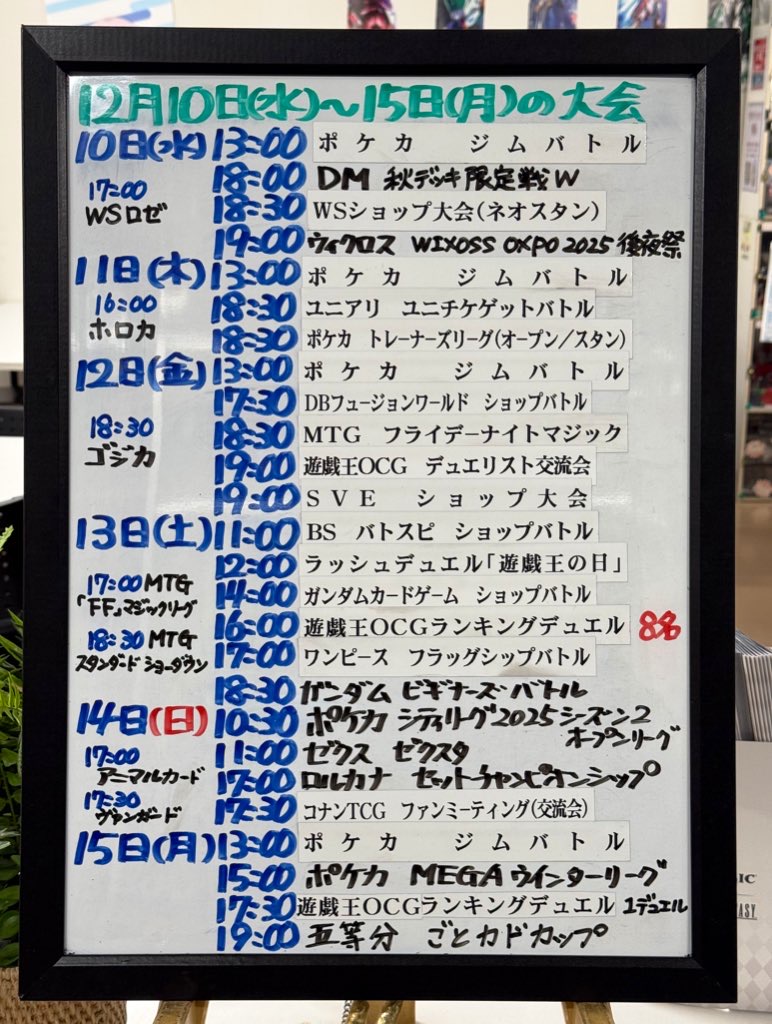 12月10日(水)～15日(月)の大会
10日(水) 13:00 ポケカ ジムバトル
18:00 DM 秋デッキ限定戦W
17:00
WSロゼ
18:30 WSショップ大会(ネオスタン)
19:00 ウィクロス WIXOSS OXPO 2025 後夜祭
11日(木) 13:00 ポケカ ジムバトル
16:00
ホロカ
18:30 ユニアリ ユニチケゲットバトル
18:30 ポケカ トレーナーズリーグ(オープン／スタン)
12日(金) 13:00 ポケカ ジムバトル
17:30 DBフュージョンワールド ショップバトル
18:30
ゴジカ
18:30 MTG フライデーナイトマジック
19:00 遊戯王OCG デュエリスト交流会
19:00 SVE ショップ大会
13日(土) 11:00 BS バトスピ ショップバトル
12:00 ラッシュデュエル「遊戯王の日」
17:00 MTG
「FF」マジックリーグ
14:00 ガンダムカードゲーム ショップバトル
16:00 遊戯王OCGランキングデュエル 8名
18:30 MTG
スタンダード ショーダウン
17:00 ワンピース フラッグシップバトル
18:30 ガンダム ビギナーズバトル
14日(日) 10:30 ポケカ シティリーグ2025シーズン2
オープンリーグ
17:00
アニマルカード
11:00 ゼクス ゼクスタ
17:00 ロルカナ セットチャンピオンシップ
17:30
ヴァンガード
17:30 コナンTCG ファンミーティング(交流会)
15日(月) 13:00 ポケカ ジムバトル
15:00 ポケカ MEGAウインターリーグ
17:30 遊戯王OCGランキングデュエル 1デュエル
19:00 五等分 ごとカドカップ